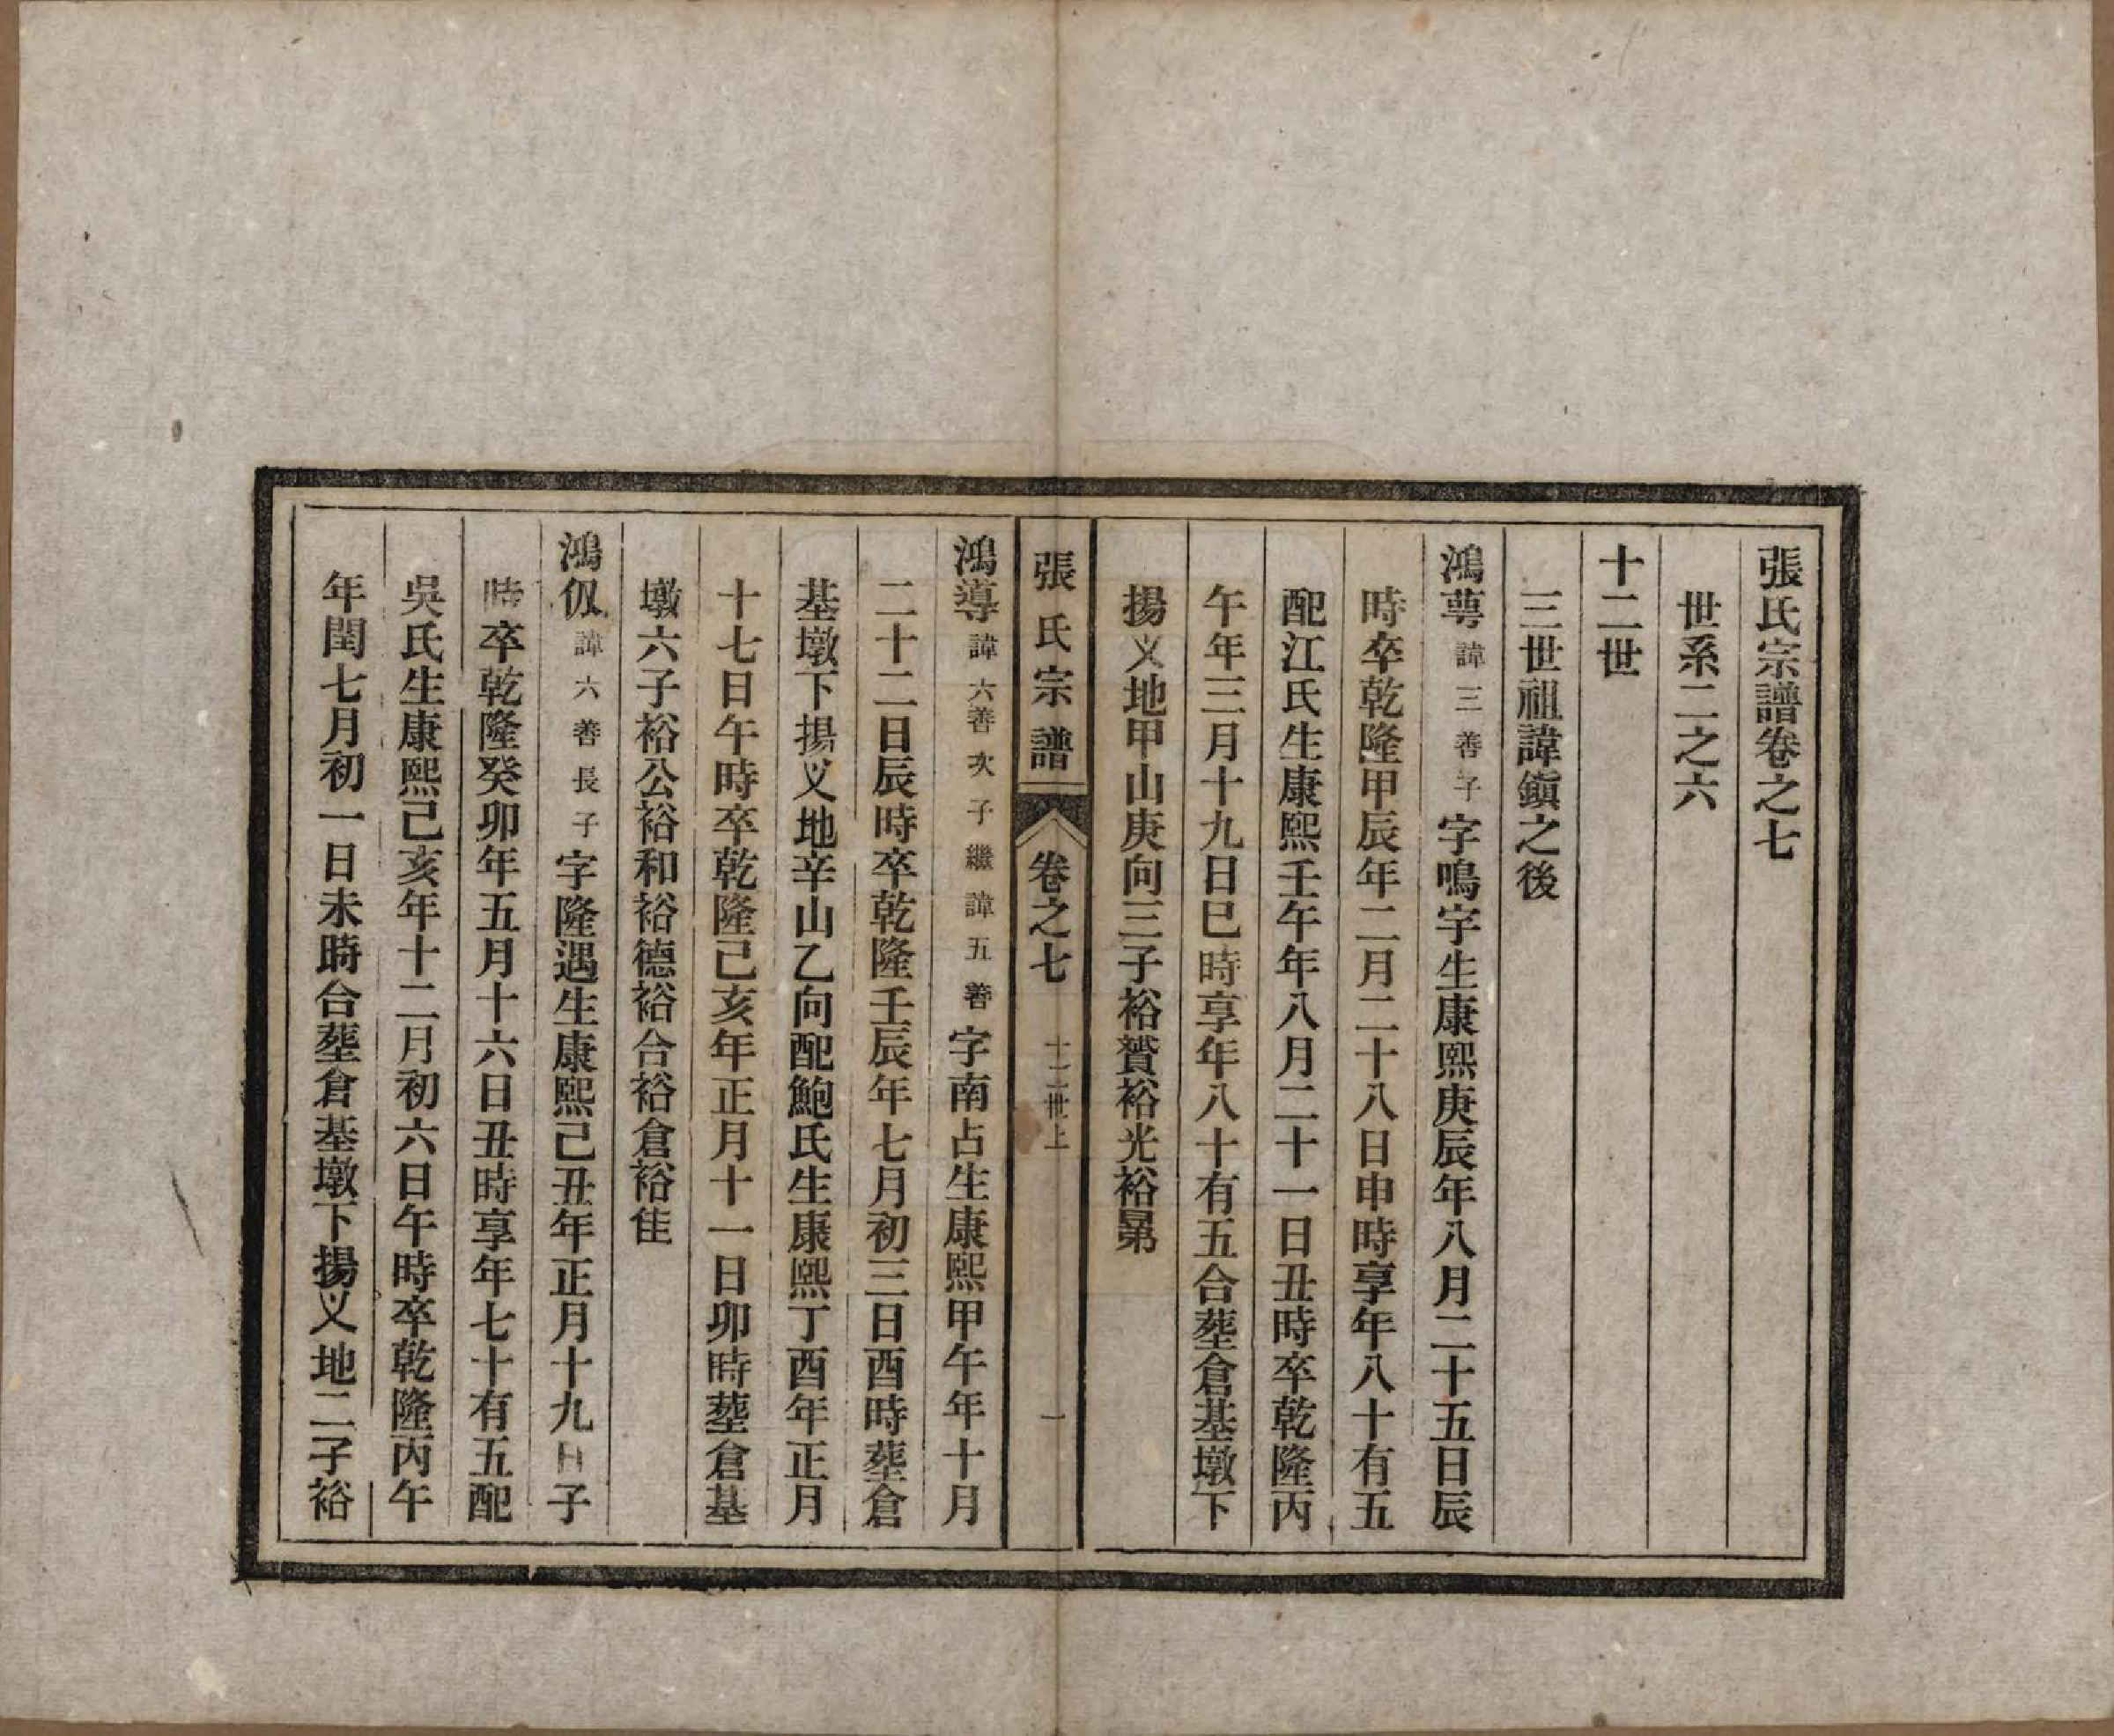 張氏宗譜卷之七
世系二之六
十二世
三世祖諱鎭之後
鴻蕚諱三善子字鳴字生康熙庚辰年八月二十五日辰
時卒乾隆甲辰年二月二十八日申時享年八十有五
配江氏生康熙壬午年八月二十一日丑時卒乾隆丙
午年三月十九日巳時享年八十有五合塟倉基墩下
揚义地甲山庚向三子裕贇裕光裕㬪
張氏宗譜 卷之七 十二世上 一
鴻導諱六善次子繼諱五善字南占生康熙甲午年十月
二十二日辰時卒乾隆壬辰年七月初三日酉時塟倉
基墩下揚义地辛山乙向配鮑氏生康熙丁酉年正月
十七日午時卒乾隆己亥年正月十一日卯時塟倉基
墩六子裕公裕和裕德裕合裕倉裕佳
鴻仭諱六善長子字隆遇生康熙己丑年正月十九日子
時卒乾隆癸卯年五月十六日丑時享年七十有五配
吳氏生康熙己亥年十二月初六日午時卒乾隆丙午
年閏七月初一日未時合塟倉基墩下揚义地二子裕